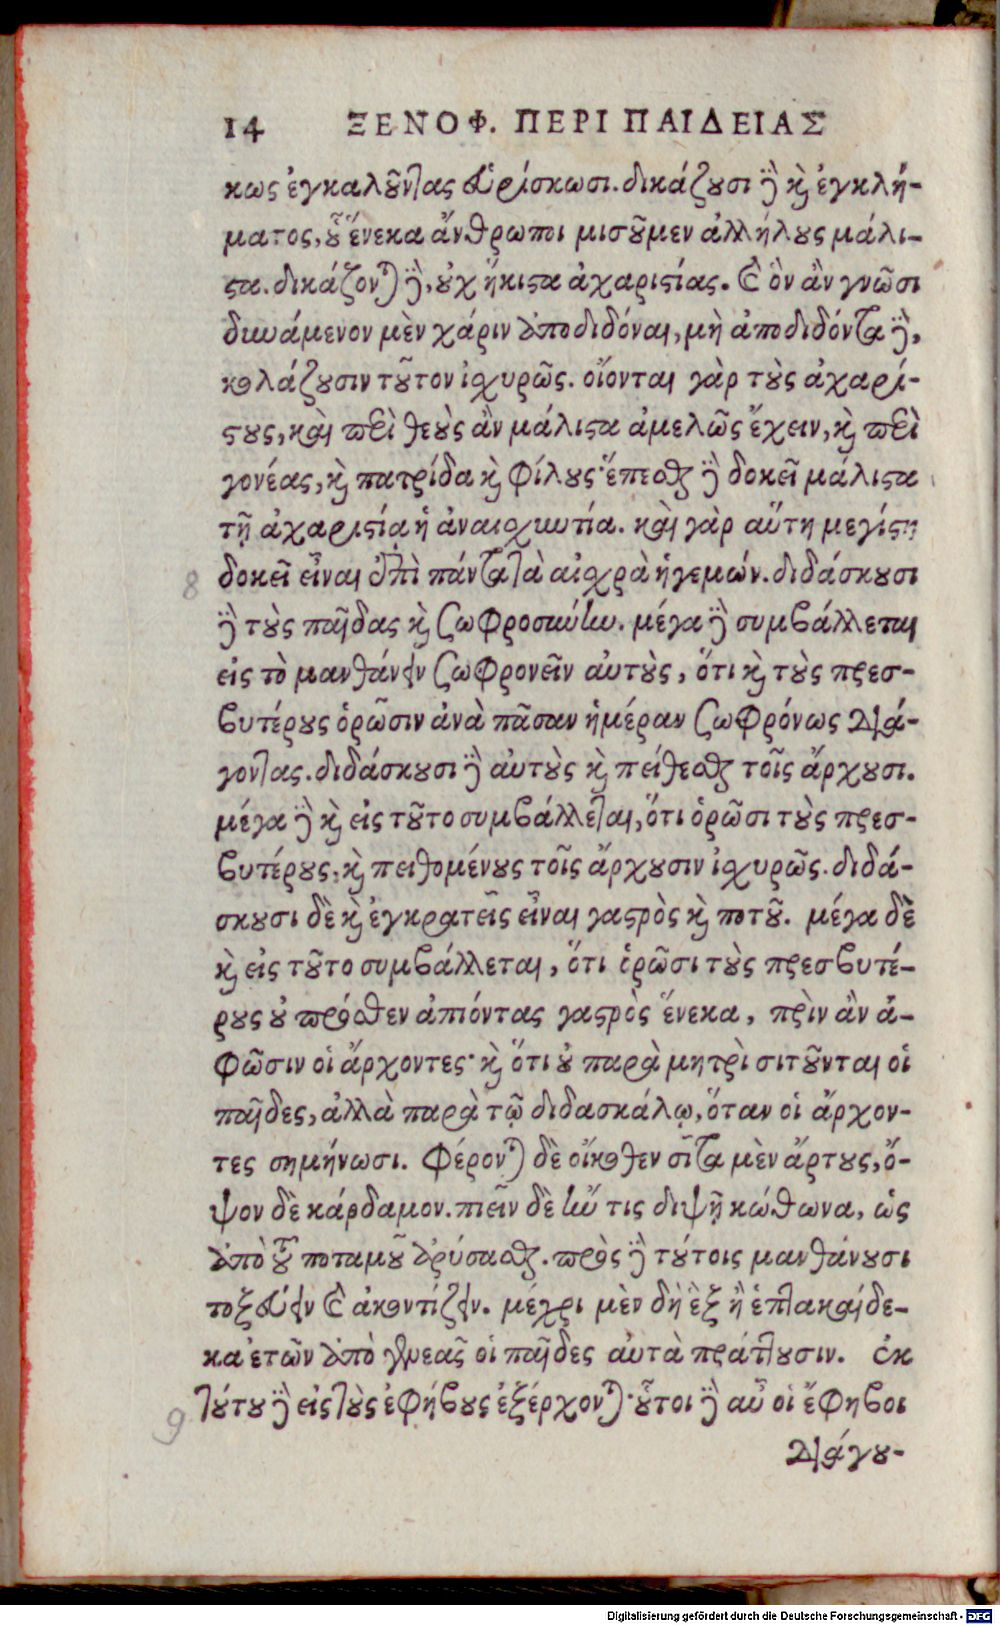 14 ΞΕΝΟΦ. ΠΕΡΙ ΠΑΙΔΕΙΑΣ
κως ἐγκαλοῦντας εὑρίσκωσι. δικάζουσι δὲ καὶ ἐγκλή-
ματος, οὗ ἕνεκα ἄνθρωποι μισοῦμεν ἀλλήλους μάλι-
στα. δικάζονται δὲ, οὐχ ἥκιστα ἀχαριστίας. καὶ ὃν ἂν γνῶσι
δυνάμενον μὲν χάριν ἀποδιδόναι, μὴ ἀποδιδόντα δὲ,
κολάζουσιν τοῦτον ἰσχυρῶς. οἴονται γὰρ τοὺς ἀχαρί-
στους, καὶ περὶ θεοὺς ἂν μάλιστα ἀμελῶς ἔχειν, καὶ περὶ
γονέας, καὶ πατρίδα καὶ φίλους· ἕπεσθαι δὲ δοκεῖ μάλιστα
τῇ ἀχαριστίᾳ ἡ ἀναισχυντία. καὶ γὰρ αὕτη μεγίστη
8 δοκεῖ εἶναι ἐπὶ πάντα τὰ αἰσχρὰ ἡγεμών. διδάσκουσι
δὲ τοὺς παῖδας καὶ σωφροσύνην. μέγα δὲ συμβάλλεται
εἰς τὸ μανθάνειν σωφρονεῖν αὐτοὺς, ὅτι καὶ τοὺς πρεσ-
βυτέρους ὁρῶσιν ἀνὰ πᾶσαν ἡμέραν σωφρόνως διά-
γοντας. διδάσκουσι δὲ αὐτοὺς καὶ πείθεσθαι τοῖς ἄρχουσι.
μέγα δὲ καὶ εἰς τοῦτο συμβάλλεται, ὅτι ὁρῶσι τοὺς πρεσ-
βυτέρους, καὶ πειθομένους τοῖς ἄρχουσιν ἰσχυρῶς. διδά-
σκουσι δὲ καὶ ἐγκρατεῖς εἶναι γαστρὸς καὶ ποτοῦ. μέγα δὲ
καὶ εἰς τοῦτο συμβάλλεται, ὅτι ὁρῶσι τοὺς πρεσβυτέ-
ρους οὐ πρόσθεν ἀπιόντας γαστρὸς ἕνεκα, πρὶν ἂν ἀ-
φῶσιν οἱ ἄρχοντες· καὶ ὅτι οὐ παρὰ μητρὶ σιτοῦνται οἱ
παῖδες, ἀλλὰ παρὰ τῷ διδασκάλῳ, ὅταν οἱ ἄρχον-
τες σημήνωσι. φέρονται δὲ οἴκοθεν σῖτα μὲν ἄρτους, ὄ-
ψον δὲ κάρδαμον. πιεῖν δὲ ἤν τις διψῇ κώθωνα, ὡς
ἀπὸ τοῦ ποταμοῦ ἀρύσασθαι. πρὸς δὲ τούτοις μανθάνουσι
τοξεύειν καὶ ἀκοντίζειν. μέχρι μὲν δὴ ἓξ ἢ ἑπτακαίδε-
κα ἐτῶν ἀπὸ γενεᾶς οἱ παῖδες αὐτὰ πράττουσιν. ἐκ
9 τούτου δὲ εἰς τοὺς ἐφήβους ἐξέρχονται· οὗτοι δὲ αὖ οἱ ἔφηβοι
διάγου-
Digitalisierung gefördert durch die Deutsche Forschungsgemeinschaft - DFG